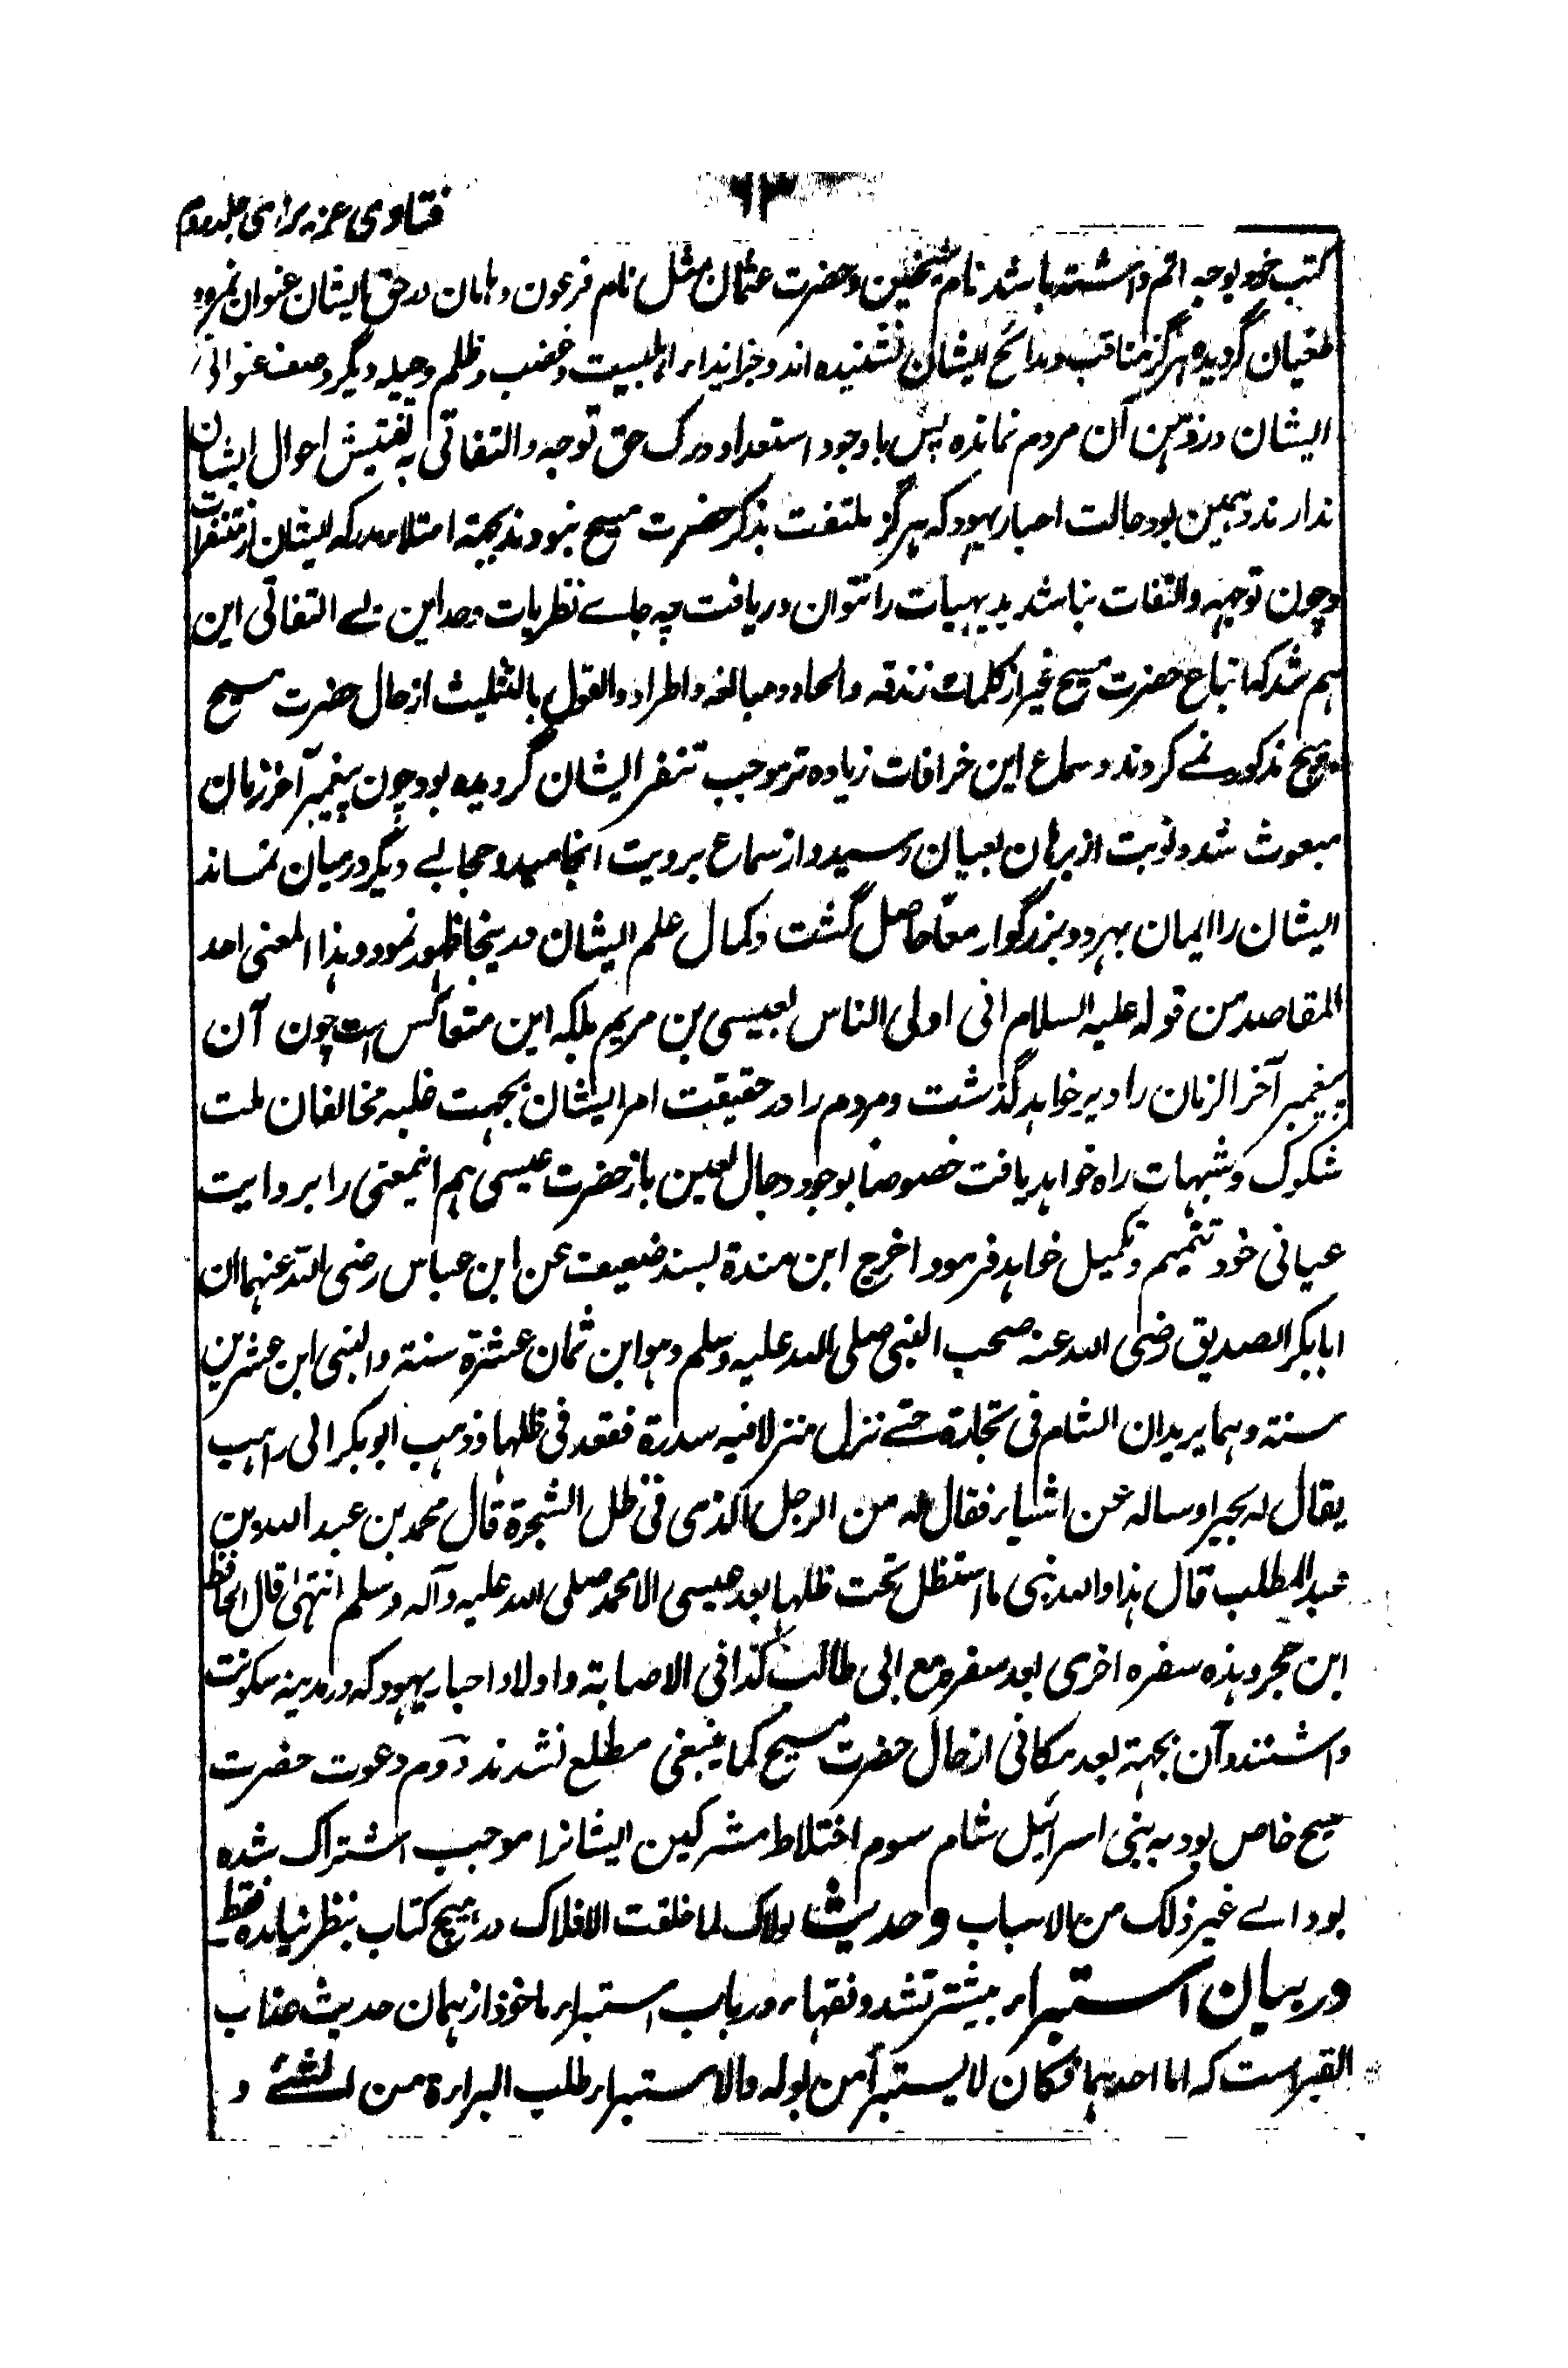 ۶۳
فتاوی عزیزی جلد دوم
کتب خود بوجه اتم داشته باشد نام شیخین و حضرت عثمان مثل نام فرعون و هامان در حق ایشان عنوان نمرود و
طغیان گردیده هرگز مناقب و مدائح ایشان نشنیده اند و جز ایذاء اهلبیت و غضب و ظلم و حیله دیگر وصف عنوانی
ایشان در ذهن آن مردم نمانده پس باوجود استعداد درک حق توجه و التفاتی به تفتیش احوال ایشان
ندارند و همین بود حالت احبار یهود که هرگز ملتفت بذکر حضرت مسیح نبودند بجهة امتلاء مدرکه ایشان از تنفرات
و چون توجهه و التفات نباشد بدیهیات را نتوان دریافت چه جاے نظریات و مد این بے التفاتی این
هم شد که اتباع حضرت مسیح غیر از کلمات زندقه و الحاد و مبالغه و اطراد و القول بالتثلیث از حال حضرت مسیح
هیچ مذکور نمے کردند و سماع این خرافات زیاده تر موجب تنفر ایشان گردیده بود چون پیغمبر آخر زمان
مبعوث شد و نوبت از برهان بعیان رسید و از سماع برویت انجامید و حجابے دیگر درمیان نماند
ایشان را ایمان بهر دو بزرگوار معاً حاصل گشت و کمال علم ایشان درینجا ظهور نمود و هذا المعنی احد
المقاصد من قوله علیه السلام انی اولی الناس بعیسی بن مریم بلکه این متعاکس است چون آن
پیغمبر آخر الزمان را دیر خواهد گذشت و مردم را در حقیقت امر ایشان بجهت غلبه مخالفان ملت
شکوک و شبهات راه خواهد یافت خصوصا بوجود دجال لعین باز حضرت عیسی هم اینمعنی را بروایت
عیانی خود تتمیم و تکمیل خواهد فرمود اخرج ابن مندة بسند ضعیف عن ابن عباس رضی الله عنهما ان
ابابکر الصدیق رضی الله عنه صحب النبی صلی الله علیه وسلم و هو ابن ثمان عشرة سنة و النبی ابن عشرین
سنة و هما یریدان الشام فی تجارة حتے نزل منزلا فیه سدرة فقعد فی ظلها و ذهب ابوبکر الی راهب
یقال له بحیرا و ساله عن اشیاء فقال له من الرجل الذی فی ظل الشجرة قال محمد بن عبد الله بن
عبد المطلب قال هذا والله نبی ما استظل تحت ظلها بعد عیسی الا محمد صلی الله علیه و آله وسلم انتهی قال الحافظ
ابن حجر و هذه سفره اخری بعد سفره مع ابی طالب کذا فی الاصابة و اولاد احبار یهود که در مدینه سکونت
داشتند و آن بجهة بعد مکانی از حال حضرت مسیح کما ینبغی مطلع نشدند دوم دعوت حضرت
مسیح خاص بود به بنی اسرائیل شام سوم اختلاط مشرکین ایشانرا موجب اشتراک شده
بود الے غیر ذلک من الاسباب و حدیث لولاک لما خلقت الافلاک در هیچ کتاب بنظر نیامده فقط
در بیان استبراء بیشتر تشدد فقهاء در باب استبراء ماخوذ از همان حدیث عذاب
القبر است که اما احدهما فکان لا یستبرأ من بوله و الاستبراء طلب البراءة من الشئے و